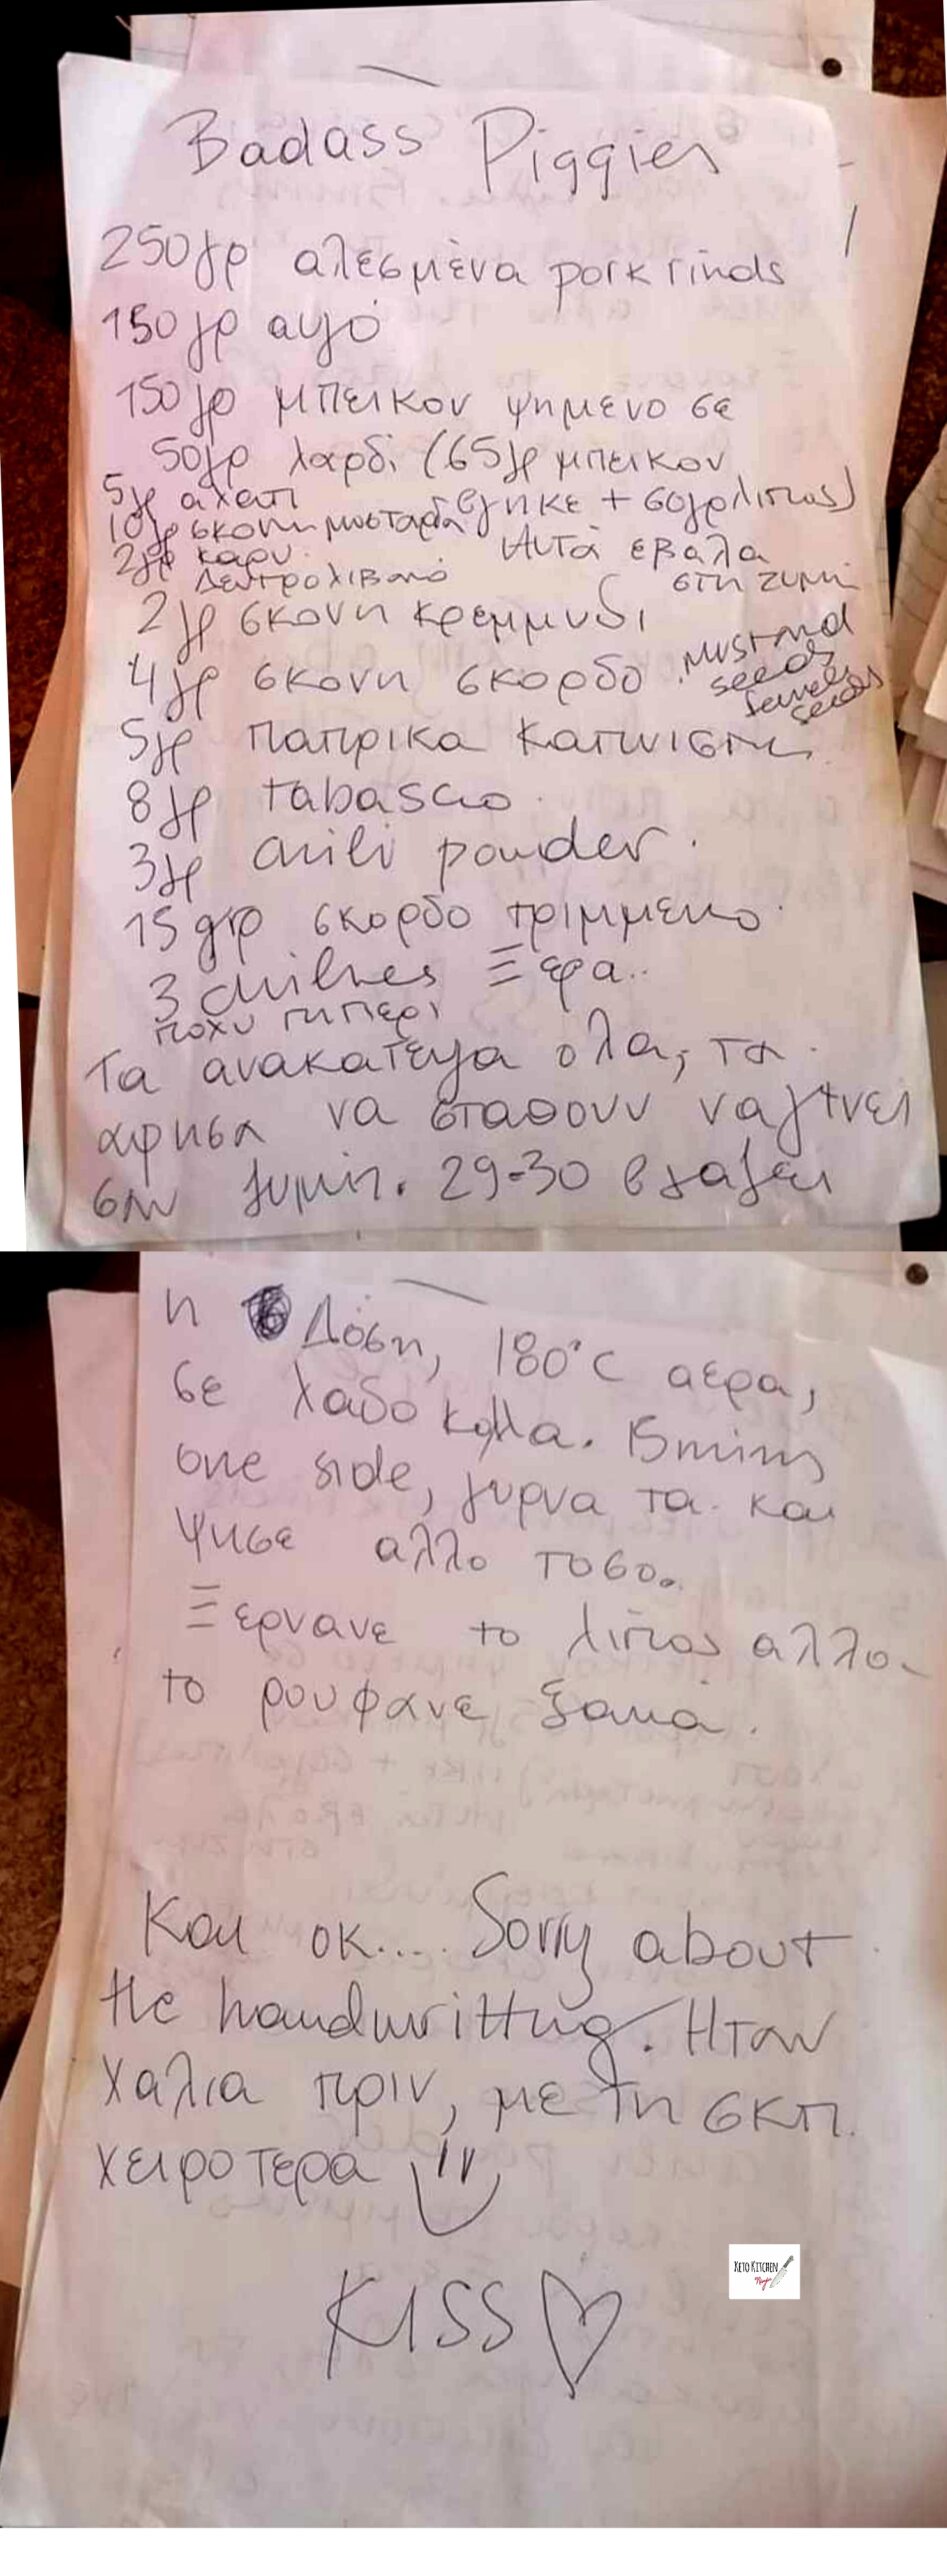 Badass Piggies
250γρ αλεσμένα pork rinds
150γρ αυγό
150γρ μπεικον ψημενο σε
50γρ λαρδί (65γρ μπεικον
βγηκε + 60γρ λιπος)
5γρ αλατι
10γρ σκονη μουσταρδα
Αυτά εβαλα
στη ζυμη
2γρ καρυ.
Δεντρολιβανό
2γρ σκονη κρεμμυδι
4γρ σκονη σκορδο
mustard
seeds
fennel
seeds
5γρ παπρικα καπνιστη
8γρ tabasco
3γρ chili powder.
15γρ σκορδο τριμμενο.
3 chilies Ξερα..
πολυ πιπερι
Τα ανακατεψα ολα, τα
αφησα να σταθουν να γινει
σαν ζυμη. 29-30 βγαζει
η Δόση, 180°C αερα,
σε λαδοκολλα. 15mins
one side, γυρνα τα και
ψησε αλλο τοσο.
Ξερνανε το λιπος αλλα
το ρουφανε ξανά.
Και οκ.... Sorry about
the handwritting. Ηταν
χαλια πριν, με τη σκπ
χειροτερα
KISS
KETO KITCHEN